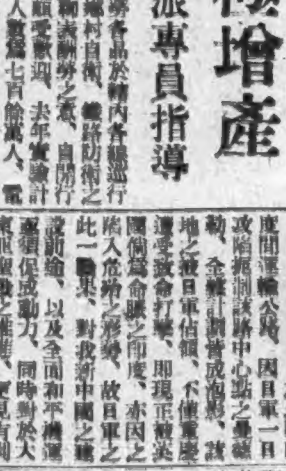 增產
派專員指導
各品於轄內各縣巡行
鄉村自衛、鐵路防衛之
表酬勞之意、自開行
頗受歡迎、去年實績計
人數達七百餘萬人、電
度間運輸公路、因日軍一日
攻陷扼制該路中心點之
勒、全線計劃皆成泡影、該
地之被日軍佔領、不僅重慶
遭受致命打擊、即現正被英
國倚為命脈之印度、亦因之
陷入危殆之形勢、故日軍之
此一戰果、對我新中國之建
設前途、以及全面和平機運
促成動力、同時對於大
東亞聖戰之推進、更見有利